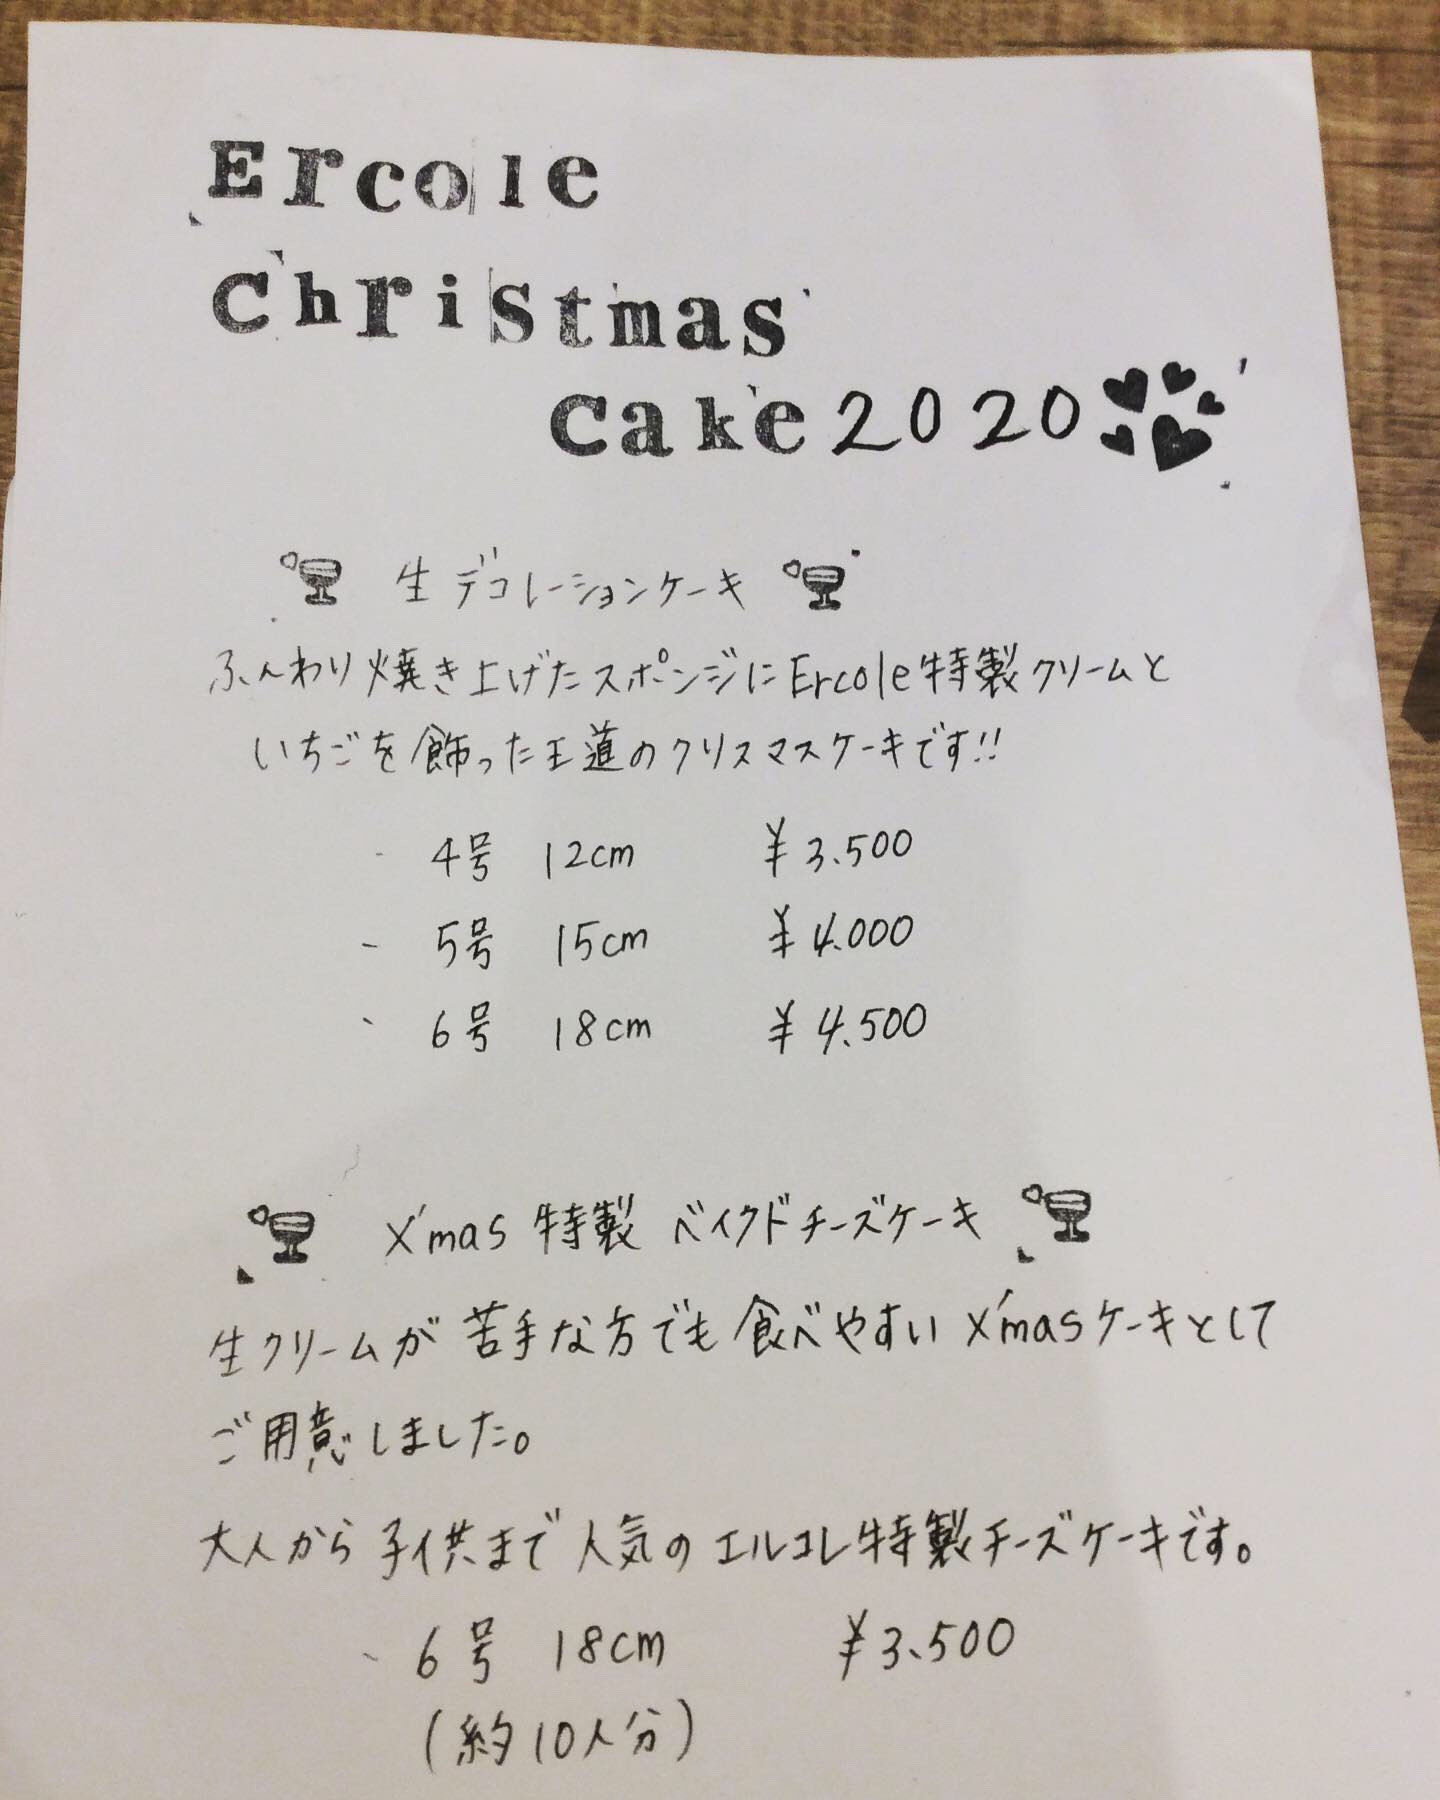 Ercole
Christmas
Cake 2020
生デコレーションケーキ
ふんわり焼き上げたスポンジにErcole特製クリームと
いちごを飾った王道のクリスマスケーキです!!
- 4号 12cm ¥3.500
- 5号 15cm ¥4.000
- 6号 18cm ¥4.500
X'mas 特製 ベイクドチーズケーキ
生クリームが苦手な方でも食べやすいX'masケーキとして
ご用意しました。
大人から子供まで人気のエルコレ特製チーズケーキです。
- 6号 18cm ¥3.500
(約10人分)